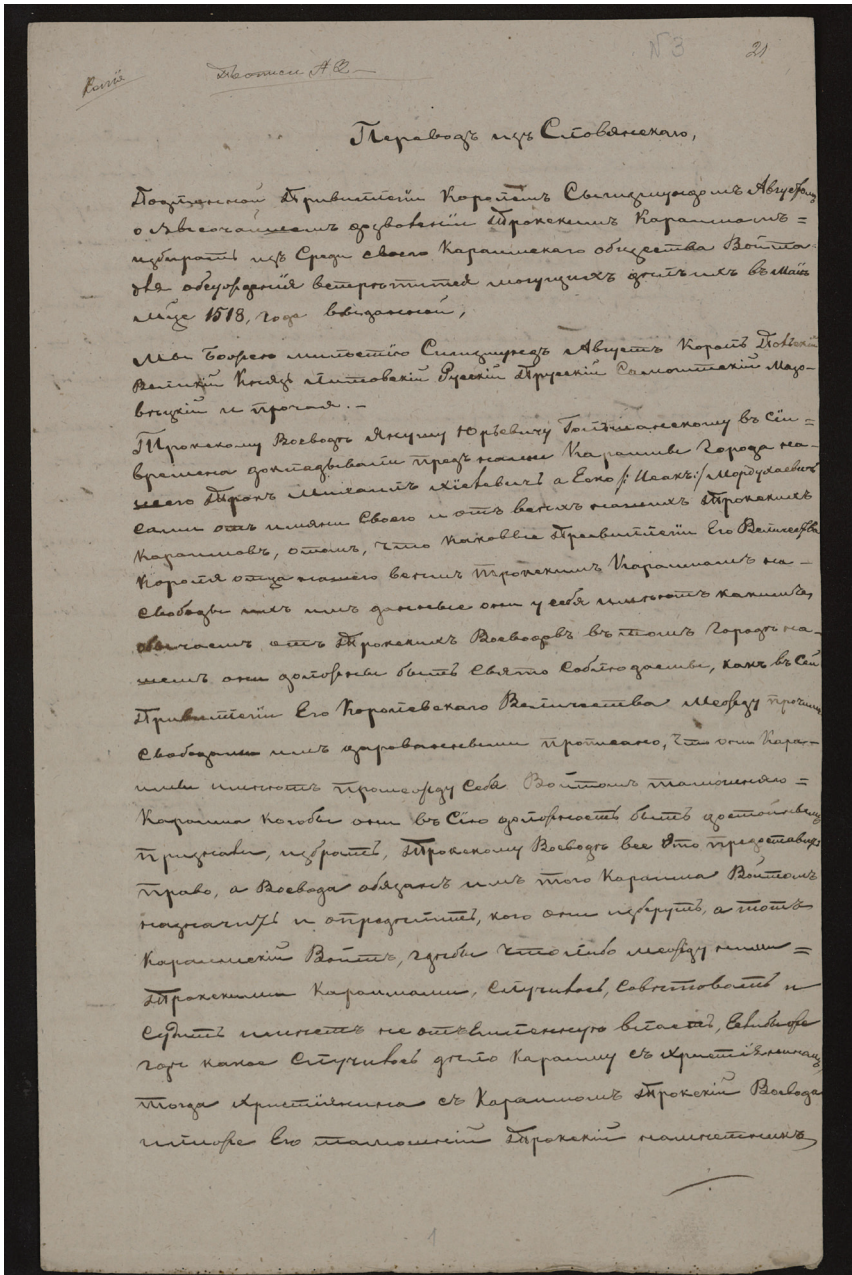 № 3
21
Копія
Переводъ изъ Словянскаго,
Подлинной Привиллегіи Королемъ Сигизмундомъ Августомъ
о Высочайшемъ дозволеніи Трокскимъ Караимамъ=
избирать изъ Среди своего Караимскаго общества Войта
для обсужденія встрѣтится могущихъ дѣлъ ихъ въ Маѣ
м-цѣ 1518, года выданной,
Мы Божею милостію Сигизмундъ Августъ Король Польскій
Великій Князь Литовскій Русскій Прусскій Самогитскій Мазо-
вѣцкій и прочая. -
Трокскому Воеводѣ Янушу Юрьевичу Гольшанскому въ Сіи=
времена докладывали предъ нами Караимы Города на-
шего Трокъ Михаилъ а Еско /: Исакъ:/ Мордухаевичъ
сами отъ имяни Своего и отъ всѣхъ нашихъ Трокскихъ
Караимовъ, о томъ, что каковые Превиллегіи Его Величества
Короля отца нашего всѣмъ трокскимъ Караимамъ на-
свободы ихъ имъ данные они у себя имѣютъ какимъ,
обычаемъ отъ Трокскихъ Воеводовъ въ томъ Городѣ на-
шемъ они должны быть Свято Соблюдаемы, какъ въ Сей
Привиллегіи Его Королевскаго Величества Между прочими
Свободами имъ дарованными прописано, Что они Кара-
имы имѣютъ промежду Себя Войтомъ тамошняго=
Караима когобы они въ Сію должность быть достойнымъ
признали, избрать, Трокскому Воеводѣ все Это предоставилъ
право, а Воевода обязанъ имъ того Караима Войтомъ
назначить и опредѣлить, кого они изберутъ, а тотъ
Караимскій Войтъ, гдѣбы Что либо между ними=
Трокскими Караимами, Случилось, Совѣтовать и
Судить имѣетъ неотъемленную власть, Еслибыже
гдѣ какое Случилось дѣло Караиму съ Христіяниномъ,
тогда Христіянина съ Караимомъ Трокскій Воевода
илиже Его тамошній Трокскій намѣстникъ,
1